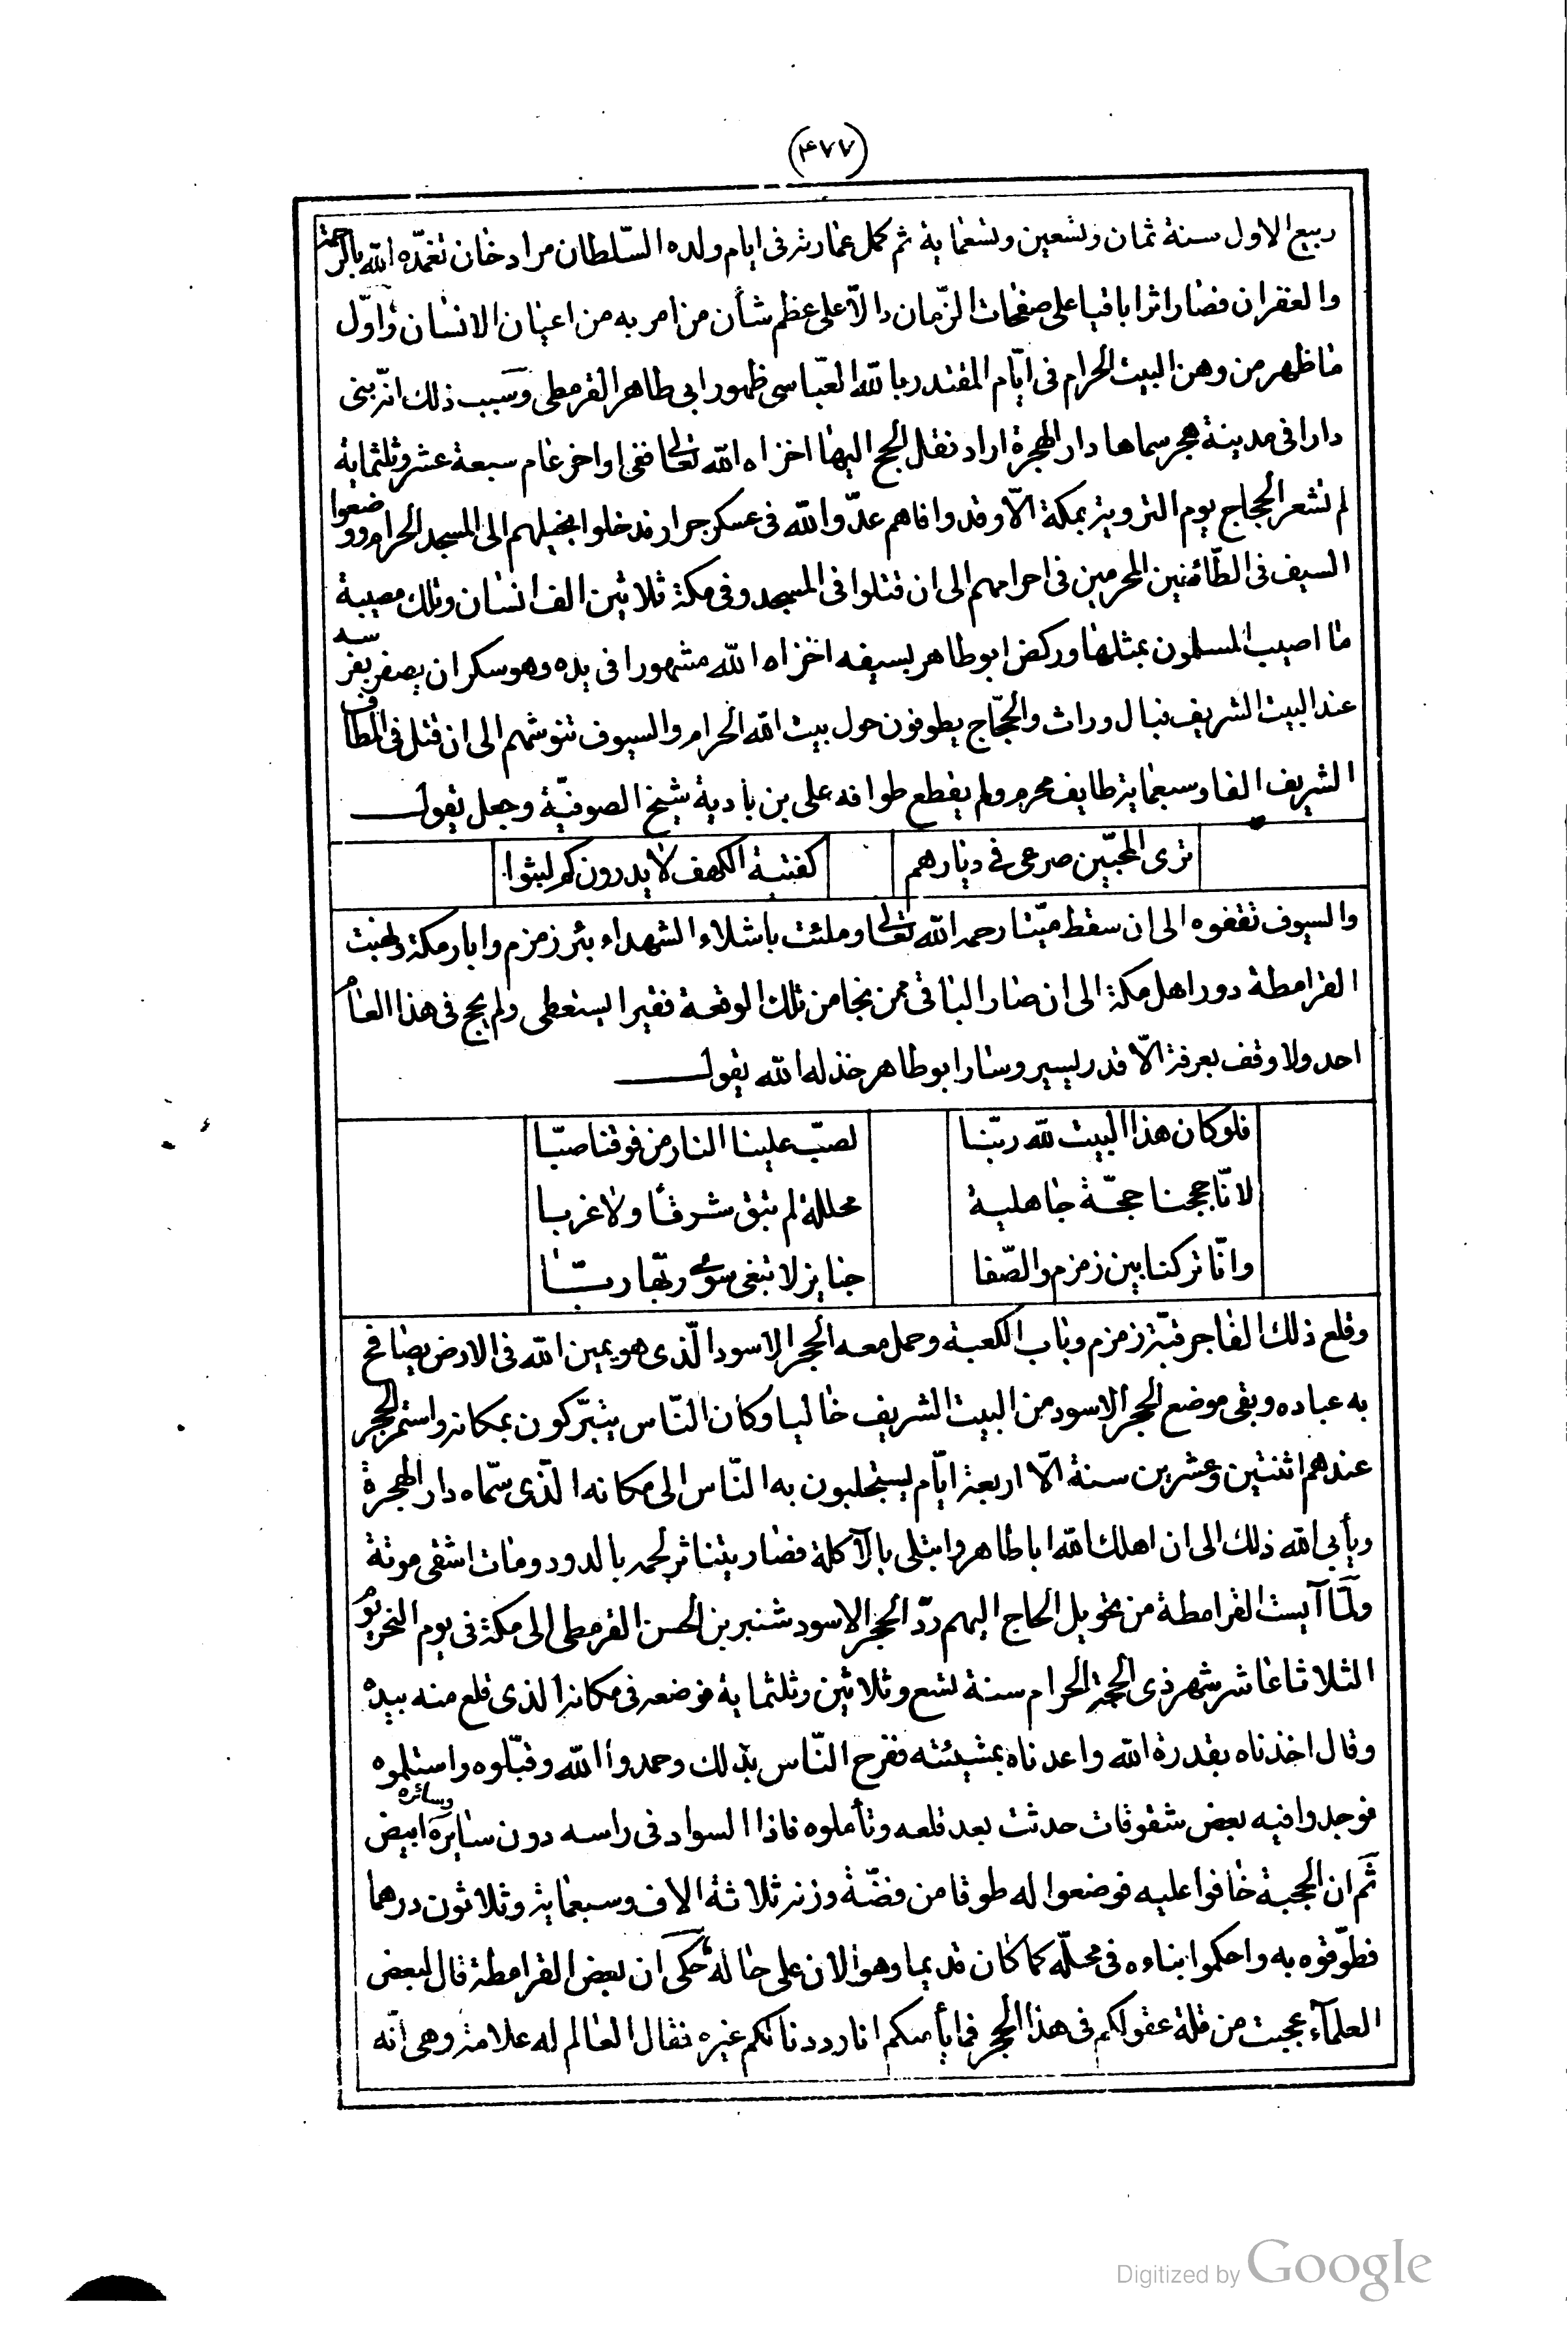 (٤٧٧)
ربيع الاول سنة ثمان وتسعين وتسعماية ثم كمل عمارته فى ايام ولده السّلطان مراد خان تغمّده الله بالرحمة
والغفران فصار اثرا باقيا على صفحات الزّمان دالّا على عظم شأن من امر به من اعيان الانسان واوّل
ما ظهر من وهن البيت الحرام فى ايّام المقتدر بالله العبّاسى ظهور ابى طاهر القرمطى وسبب ذلك انّه بنى
دارا فى مدينة هجر سماها دار الهجرة اراد نقل الحج اليها اخزاه الله تعالى ففى اواخر عام سبعة عشر وثلثماية
لم تشعر الحجاج يوم التروية بمكة الّا وقد وافاهم عدّو الله فى عسكر جرار فدخلوا بخيلهم الى المسجد الحرام ووضعوا
السيف فى الطّائفين المحرمين فى احرامهم الى ان قتلوا فى المسجد وفى مكة ثلاثين الف انسان وتلك مصيبة
ما اصيب المسلمون بمثلها وركض ابو طاهر بسيفه اخزاه الله مشهورا فى يده وهو سكران يصفر بفرسه
عند البيت الشريف فبال وراث والحجّاج يطوفون حول بيت الله الحرام والسيوف تنوشهم الى ان قتل فى المطاف
الشريف الفا وسبعماية طايف محرم ولم يقطع طوافه على بن بادية شيخ الصوفيّة وجعل يقول
ترى المحبّين صرعى فى ديارهم كفتية الكهف لا يدرون كم لبثوا
والسيوف تقفوه الى ان سقط ميّتا رحمه الله تعالى وملئت باشلاء الشهداء بئر زمزم وابار مكة ونهبت
القرامطة دور اهل مكة الى ان صار الباقى ممن نجا من تلك الوقعة فقيرا يستعطى ولم يحج فى هذا العام
احد ولا وقف بعرفة الّا قدر يسير وسار ابو طاهر خذله الله يقول
فلو كان هذا البيت لله ربّنا لصبّ علينا النار من فوقنا صبّا
لانّا حججنا حجّة جاهلية محللة لم تبق شرقا ولا غربا
وانّا تركنا بين زمزم والصّفا جنايز لا تبغى سوى ربّها ربّا
وقلع ذلك الفاجر قبّة زمزم وباب الكعبة وحمل معه الحجر الاسود الّذى هو يمين الله فى الارض يصافح
به عباده وبقى موضع الحجر الاسود من البيت الشريف خاليا وكان النّاس يتبرّكون بمكانه واستمر الحجر
عندهم اثنتين وعشرين سنة الّا اربعة ايّام يستجلبون به النّاس الى مكانه الّذى سمّاه دار الهجرة
ويأبى الله ذلك الى ان اهلك الله ابا طاهر وابتلى بالآكلة فصار يتناثر لحمه بالدود ومات اشقى موتة
ولمّا آيست القرامطة من تحويل الحاج اليهم ردّ الحجر الاسود شنبر بن الحسن القرمطى الى مكة فى يوم النحر يوم
الثلاثا عاشر شهر ذى الحجة الحرام سنة تسع وثلاثين وثلثماية فوضعه فى مكانه الذى قلع منه بيده
وقال اخذناه بقدرة الله واعدناه بمشيئته ففرح النّاس بذلك وحمدوا الله وقبّلوه واستلموه
فوجدوا فيه بعض شقوقات حدثت بعد قلعه وتأملوه فاذا السواد فى راسه دون سايره وسائره ابيض
ثم ان الحجبة خافوا عليه فوضعوا له طوقا من فضّة وزنه ثلاثة الاف وسبعماية وثلاثون درهما
فطوّقوه به واحكموا بناءه فى محلّه كما كان قديما وهو الان على حاله حكى ان بعض القرامطة قال لبعض
العلمآء عجبت من قلة عقولكم فى هذا الحجر فما يأمنكم انا رددنا لكم غيره فقال العالم له علامة وهى انّه
Digitized by Google